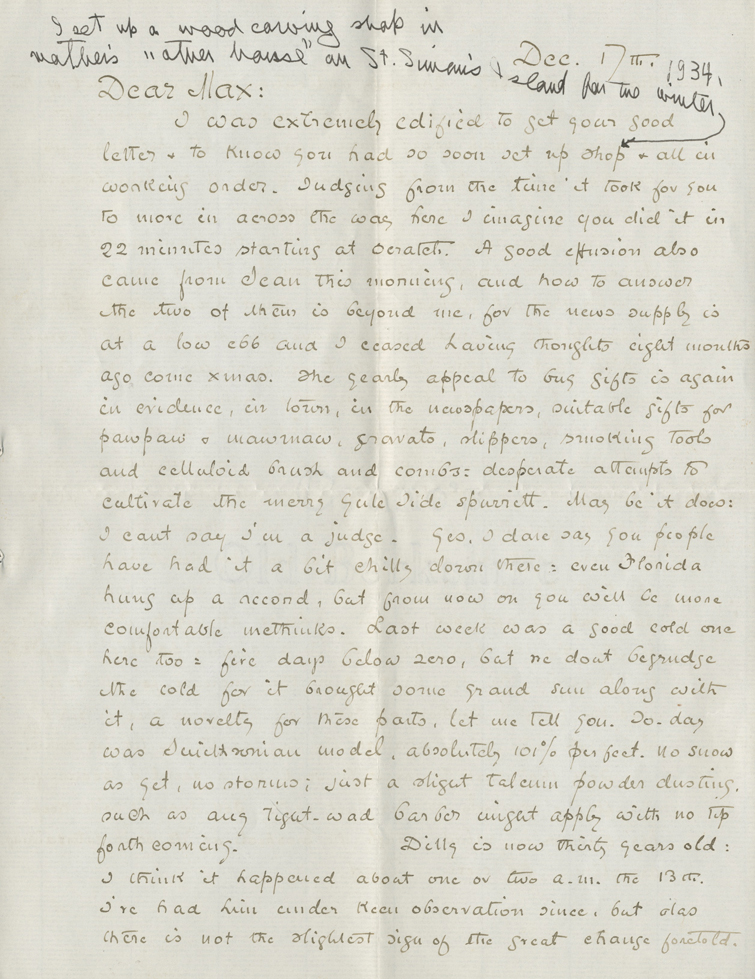 I set up a wood carving shop in
mother's "other house" on St. Simon's Island for the winter
Dec. 17th. 1934,
Dear Max:
I was extremely edified to get your good
letter & to know you had so soon set up shop & all in
working order. Judging from the time it took for you
to move in across the way here I imagine you did it in
22 minutes starting at scratch. A good effusion also
came from Jean this morning, and how to answer
the two of them is beyond me, for the news supply is
at a low ebb and I ceased having thoughts eight months
ago come xmas. The yearly appeal to buy gifts is again
in evidence, in town, in the newspapers, suitable gifts for
pawpaw & mawmaw, gravats, slippers, smoking tools
and celluloid brush and combs: desperate attempts to
cultivate the merry Yule Tide spurrit. May be it does:
I cant say I'm a judge. Yes, I dare say you people
have had it a bit chilly down there: even Florida
hung up a record, but from now on you will be more
comfortable methinks. Last week was a good cold one
here too: five days below zero, but we dont begrudge
the cold for it brought some grand sun along with
it, a novelty for these parts, let me tell you. To-day
was model, absolutely 101% perfect. no snow
as yet, no storms; just a sligt talcum powder dusting,
such as any tight-wad barber might apply with no tip
forth coming. Dilly is now thirty years old:
I think it happened about one or two a.m. the 13th.
I've had him under keen observation since, but alas
there is not the slightest sign of the great change foretold.